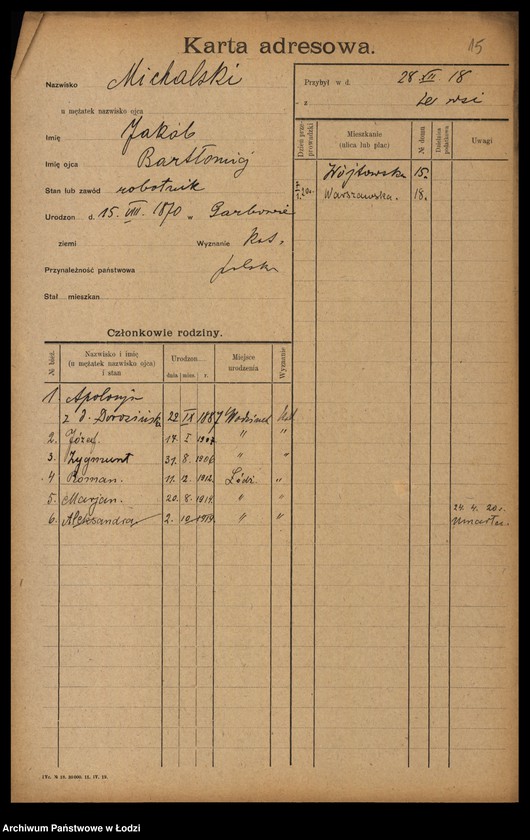 Karta adresowa.
15
Nazwisko Michalski
u mężatek nazwisko ojca
Imię Jakób
Imię ojca Bartłomiej
Stan lub zawód robotnik
Urodzon d. 15. VIII. 1870 w Garbowie
ziemi Wyznanie Kat.
Przynależność państwowa polska
Stał mieszkan
Przybył w d. 28 XII 18
z ze wsi
Dzień przeprowadzki Mieszkanie (ulica lub plac) № domu Dzielnica podatkowa Uwagi
Wójtowska 15.
20. Warszawska. 18.
Członkowie rodziny.
№ bież. Nazwisko i imię (u mężatek nazwisko ojca) i stan Urodzon Miejsce urodzenia Wyznanie
data mies. r.
1. Apolonja
z d. 22 IX 1887 Kat
2. Józef. 17. I 1904 " "
3. Zygmunt 31. 8. 1906 " "
4 Roman. 11. 12. 1912. Łódź. "
5. Marjan. 20. 8. 1914. " "
24. 4. 20 r.
6. Aleksandra 2. 10 1919 " " umarła.
ITc. № 19. 20.000. II. IT. 18.
Archiwum Państwowe w Łodzi